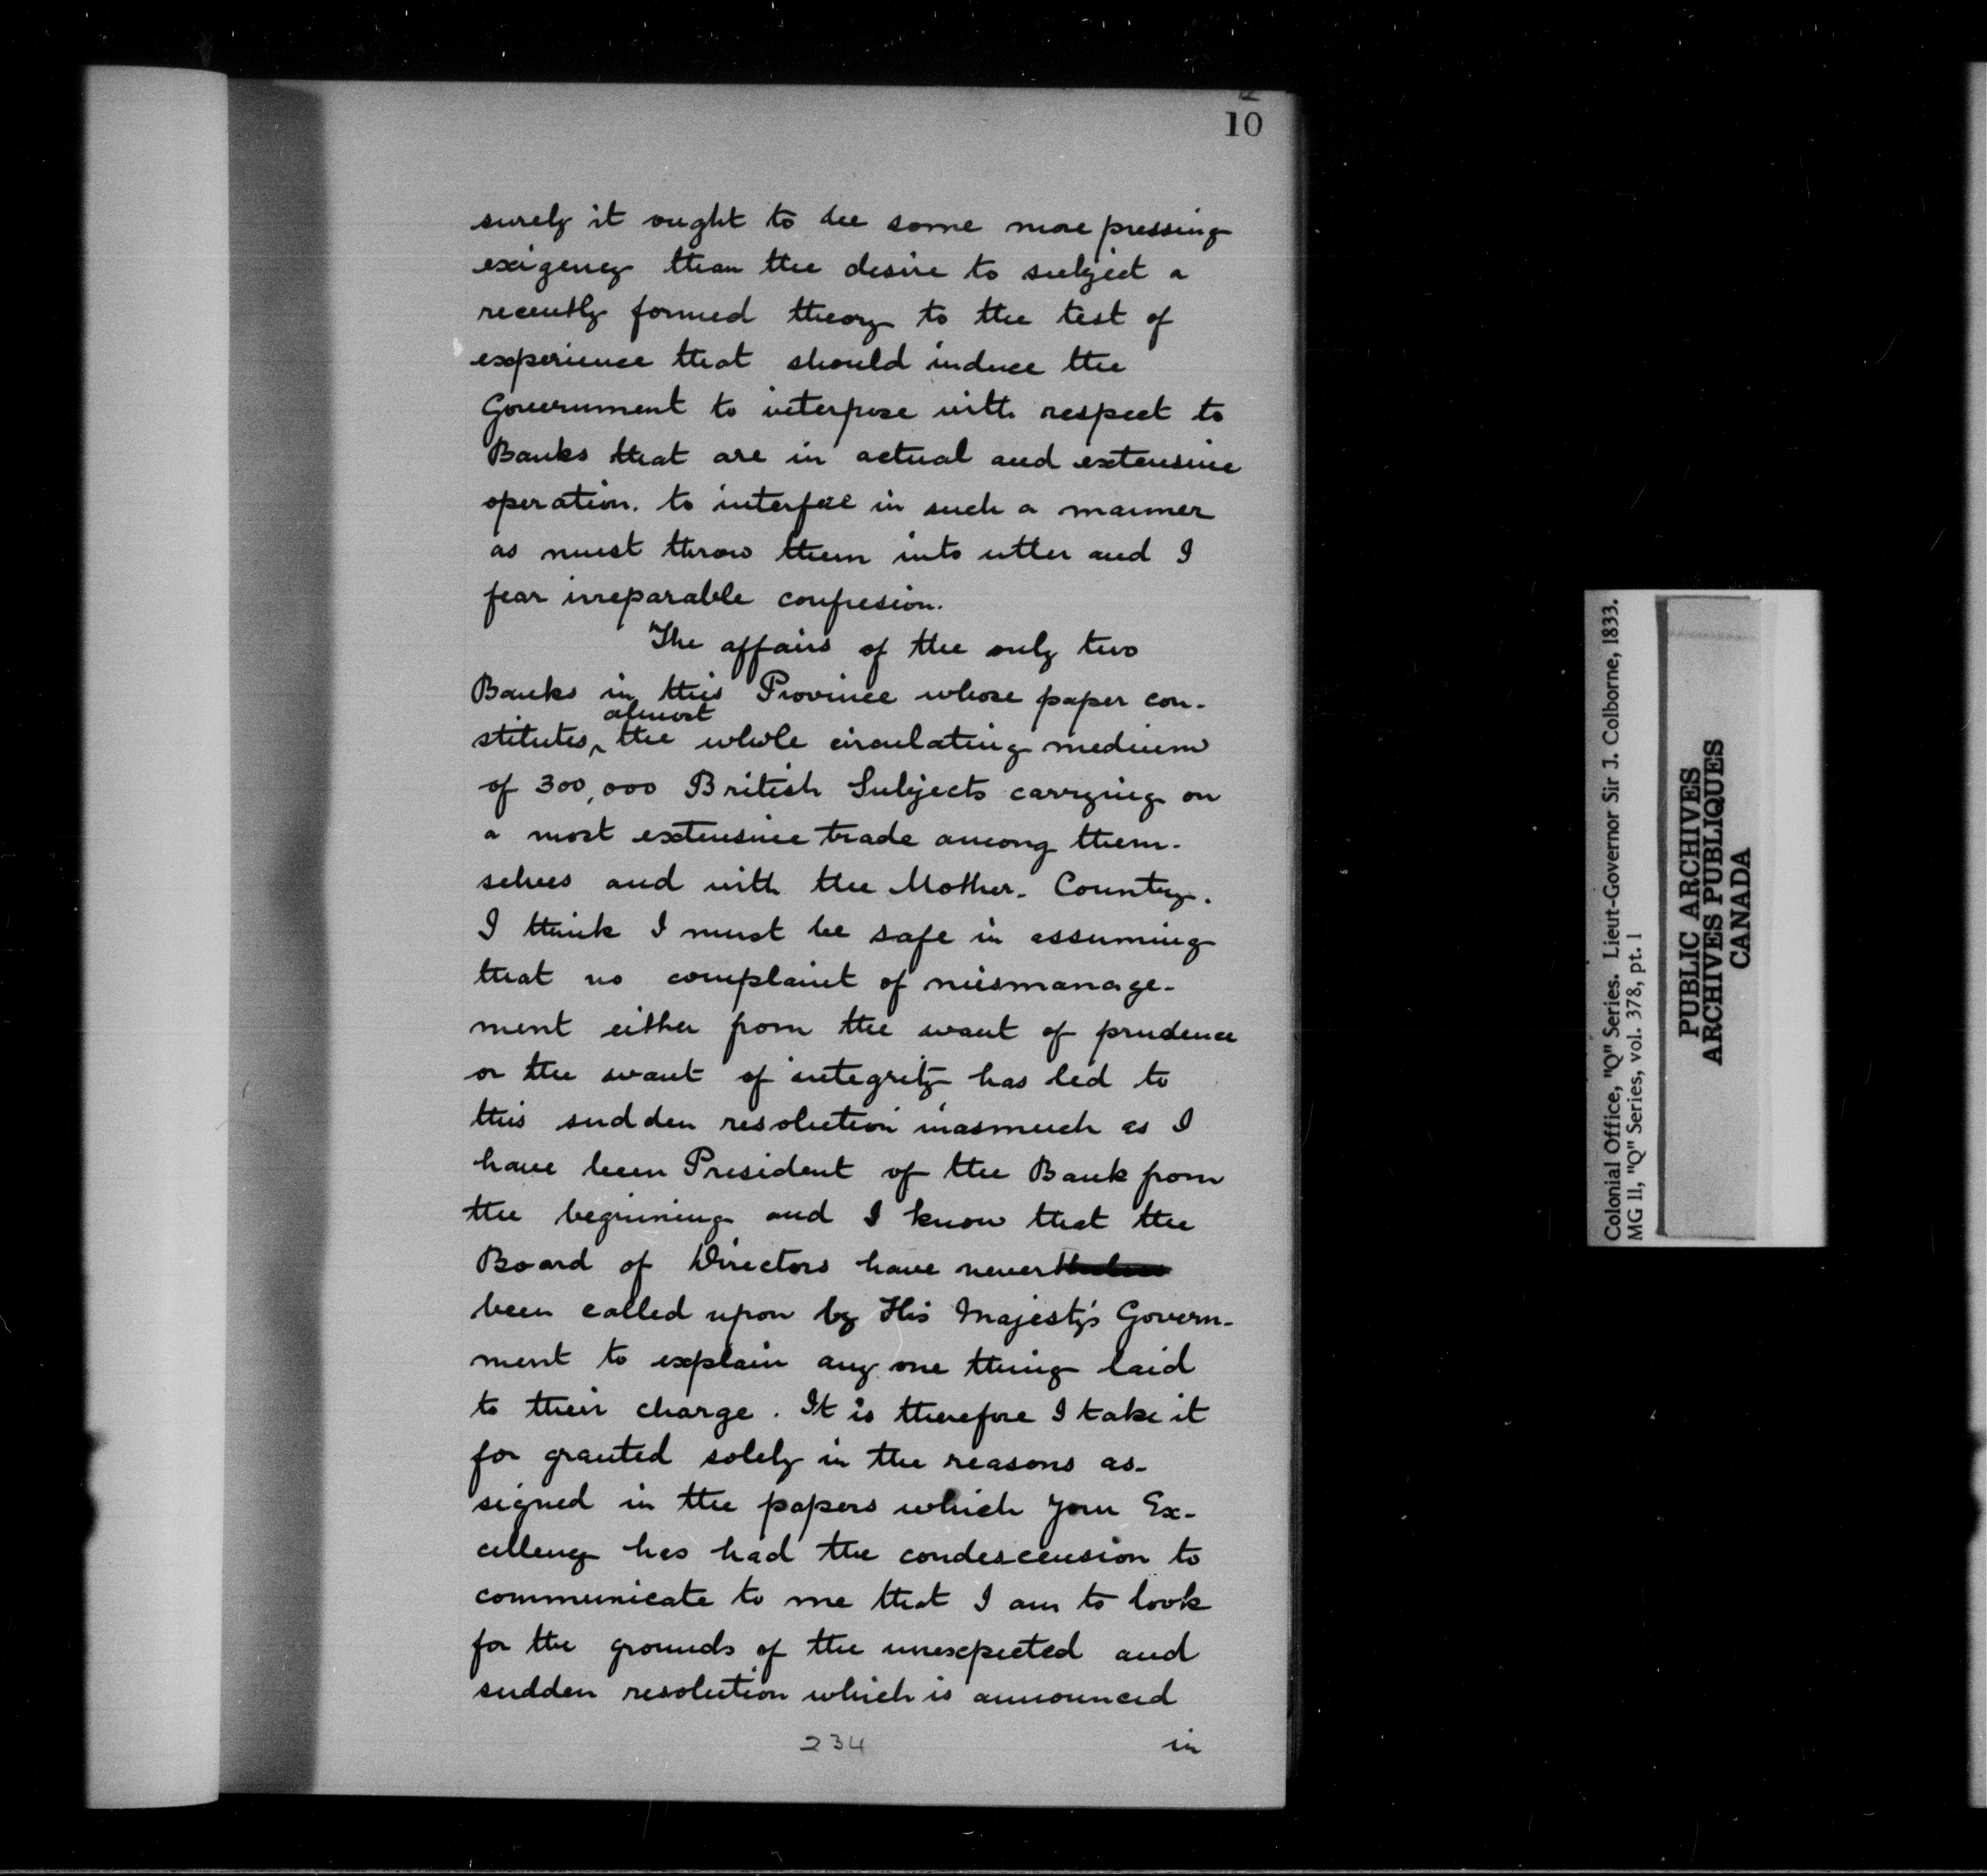 10
surely it ought to be some more pressing
exigency than the desire to subject a
recently formed theory to the test of
experience that should induce the
Government to interpose with respect to
Banks that are in actual and extensive
operation. to interfere in such a manner
as must throw them into utter and I
fear irreparable confusion.
The affairs of the only two
Banks in this Province whose paper con-
almost
stitutes the whole circulating medium
of 300,000 British Subjects carrying on
a most extensive trade among them-
selves and with the Mother-Country.
I think I must be safe in assuming
that no complaint of mismanage-
ment either from the want of prudence
or the want of integrity has led to
this sudden resolution inasmuch as I
have been President of the Bank from
the beginning and I know that the
Board of Directors have never
been called upon by His Majesty's Govern-
ment to explain any one thing laid
to their charge. It is therefore I take it
for granted solely in the reasons as-
signed in the papers which your Ex-
cellency has had the condescension to
communicate to me that I am to look
for the grounds of the unexpected and
sudden resolution which is announced
in
234
Colonial Office, "Q" Series. Lieut-Governor Sir J. Colborne, 1833.
MG 11, "Q" Series, vol. 378, pt. 1
PUBLIC ARCHIVES
ARCHIVES PUBLIQUES
CANADA